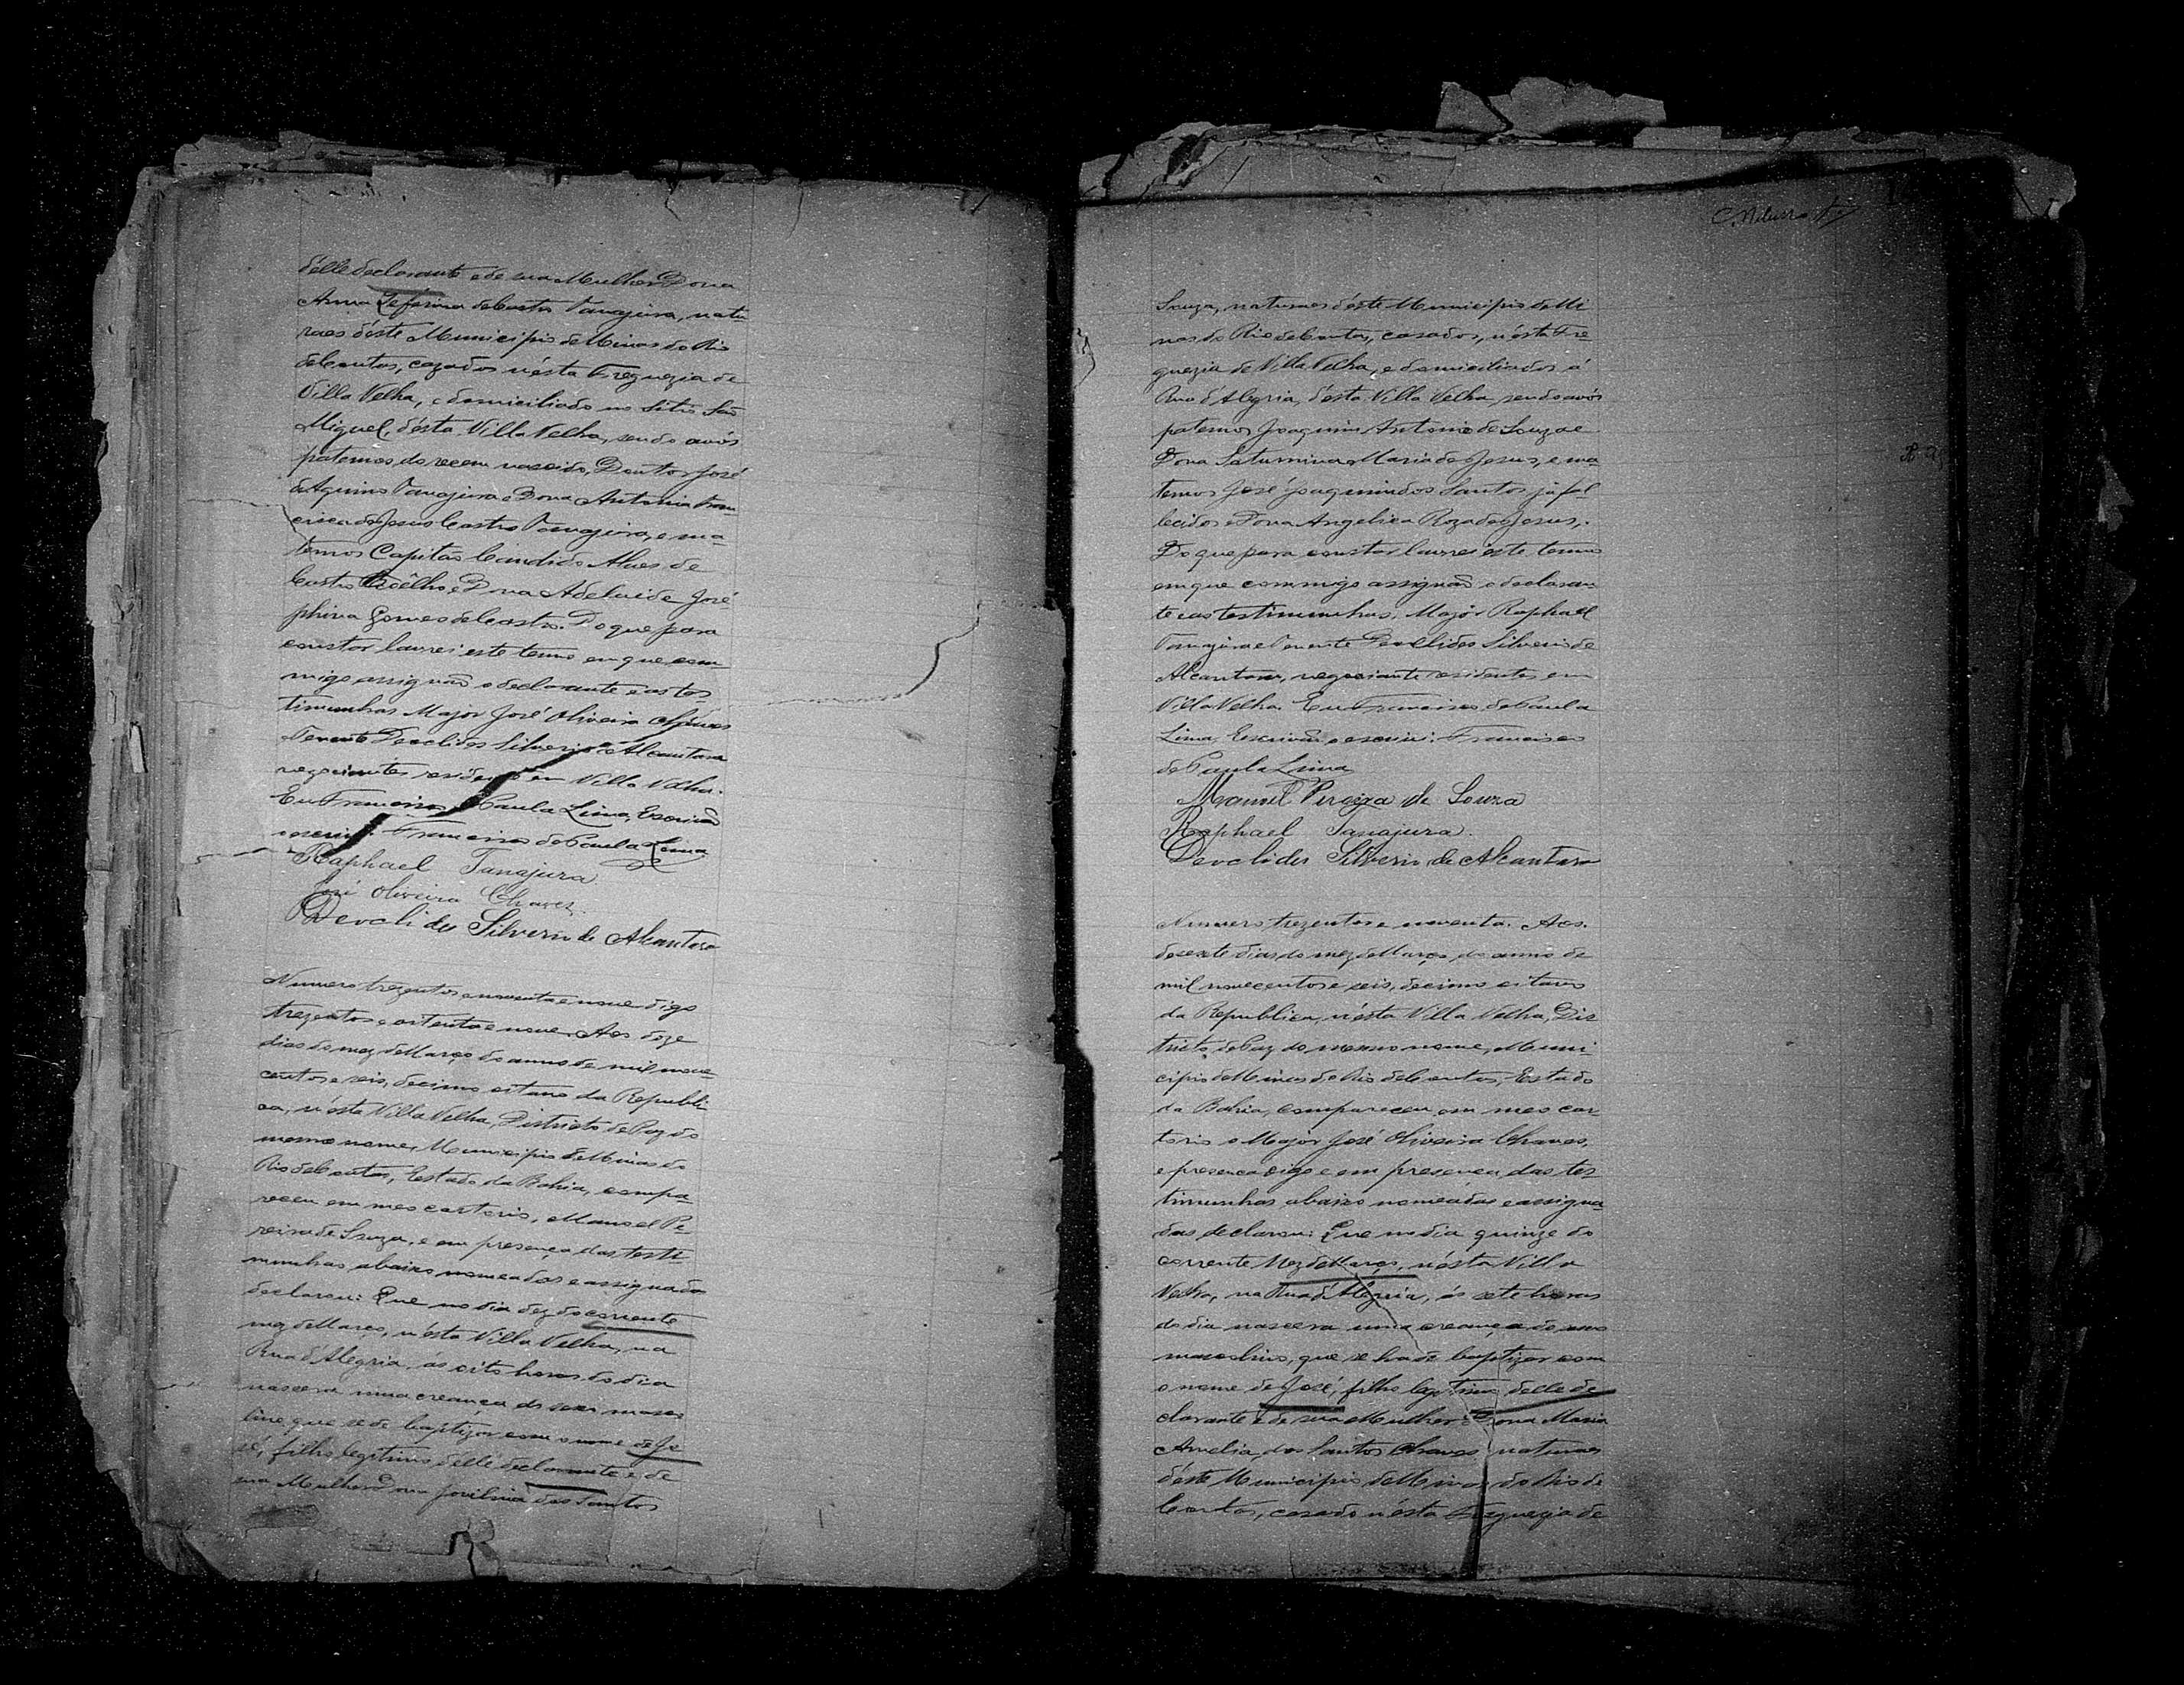 délle declarante e de sua Mulher Dona
Anna Zeferina de Castro Tanajura, natu
raes déste Municipio de Minas do Rio
de Contas, cazados nésta Freguezia de
Villa Velha, e domiciliado no Sitio São
Miguel, désta Villa Velha, sendo avós
paternos do recem nascido, Doutor José
de Aquino Tanajura e Dona Antonia Fran
cisca de Jesus Castro Tanajura, e ma-
ternos Capitão Candido Alves de
Castro Coêlho e Dona Adelaide José
phina Gomes de Castro. Do que para
constar lavrei este termo em que com
migo assignão o declarante e as tes
timunhas Major José Oliveira Chaves
Tenente Deoclides Silverio de Alcantara
negociantes residentes em Villa Velha.
Eu Francisco de Paula Lima, Escrivão
o escrivi. Francisco de Paula Lima
Raphael Tanajura.
José Oliveira Chaves.
Deoclides Silverio de Alcantara
Numero trezentos e noventa e nove digo
trezentos e oitenta e nove. Aos doze
dias do mez de Março do anno de mil nove
centos e seis, decimo oitavo da Republi
ca, nésta Villa Velha, Districto de Paz do
mesmo nome, Municipio de Minas do
Rio de Contas, Estado da Bahia, compa
receu em meo cartorio, Manoel Pe
reira de Souza, e em presença das teste
munhas abaixo nomeadas e assignadas
declarou: Que no dia dez do corrente
mez de Março, nésta Villa Velha, na
Rua d'Alegria, ás oito horas do dia
nascera uma creança do sexo mascu
lino que se de baptizar com o nome de Jo
sé, filho legitimo délle declarante e de
sua Mulher Dona Jovilina dos Santos
Souza, naturaes déste Municipio de Mi
nas do Rio de Contas, casados, nésta Fre
guezia de Villa Velha, e domiciliados á
Rua d'Alegria, désta Villa Velha, sendo avós
paternos Joaquim Antonio de Souza e
Dona Saturnina Maria de Jesus, e ma
ternos José Joaquim dos Santos, já fal
lecidos e Dona Angelica Roza de Jesus.
Do que para constar lavrei este termo
em que commigo assignão o declaran
te e as testimunhas. Major Raphael
Tanajura e Tenente Deoclides Silverio de
Alcantara, negociante residentes em
Villa Velha. Eu Francisco de Paula
Lima, Escrivão o escrivi. Francisco
de Paula Lima
Manoel Pereira de Souza
Raphael Tanajura.
Deoclides Silverio de Alcantara
Numero trezentos e noventa. Aos
desesete dias do mez de Março do anno de
mil novecentos e seis, decimo oitavo
da Republica, nésta Villa Velha, Dis
tricto de Paz do mesmo nome, Muni
cipio de Minas do Rio de Contas, Estado
da Bahia, compareceu em meo car
torio o Major José Oliveira Chaves,
e presença digo e em presença das tes
timunhas abaixo nomeadas e assigna
das declarou: Que no dia quinze do
corrente Mez de Março, nésta Villa
Velha, na Rua d'Alegria, ás sete horas
do dia nascera uma creança de sexo
masculino, que se ha de baptizar com
o nome de José, filho legitimo delle de
clarante e de sua Mulher Dona Maria
Amelia dos Santos Chaves naturaes
déste Municipio de Minas do Rio de
Contas, casado nésta Freguezia de